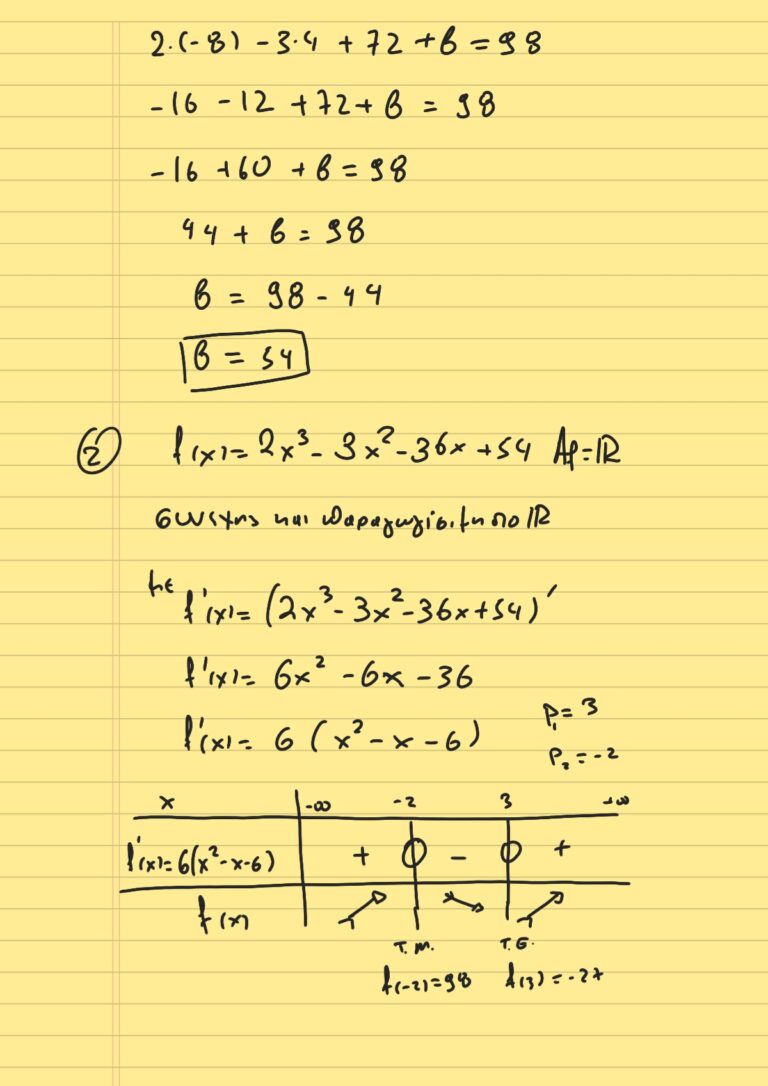 2·(-8) - 3·4 + 72 + β = 98
-16 - 12 + 72 + β = 98
-16 + 60 + β = 98
44 + β = 98
β = 98 - 44
β = 54
② f(x) = 2x³ - 3x² - 36x + 54 Af = ℝ
συνεχης και παραγωγίσιμη στο ℝ
με f'(x) = (2x³ - 3x² - 36x + 54)'
f'(x) = 6x² - 6x - 36
f'(x) = 6(x² - x - 6) ρ₁ = 3
ρ₂ = -2
x -∞ -2 3 +∞
f'(x) = 6(x² - x - 6) + 0 - 0 +
f(x) ↗ ↘ ↗
Τ.Μ. Τ.Ε.
f(-2) = 98 f(3) = -27